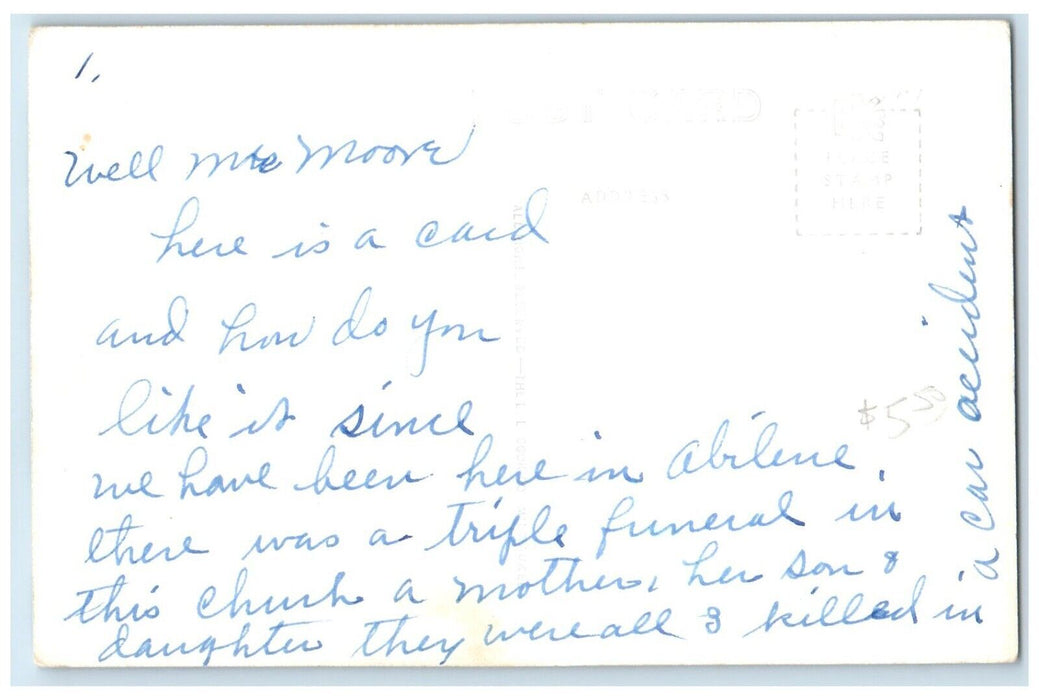 1.
Well Mrs Moore
here is a card
and how do you
like it since
we have been here in Abilene,
there was a triple funeral in
this church a mother, her son &
daughter they were all 3 killed in
a car accident
ADDRESS
PLACE
STAMP
HERE
$5.50